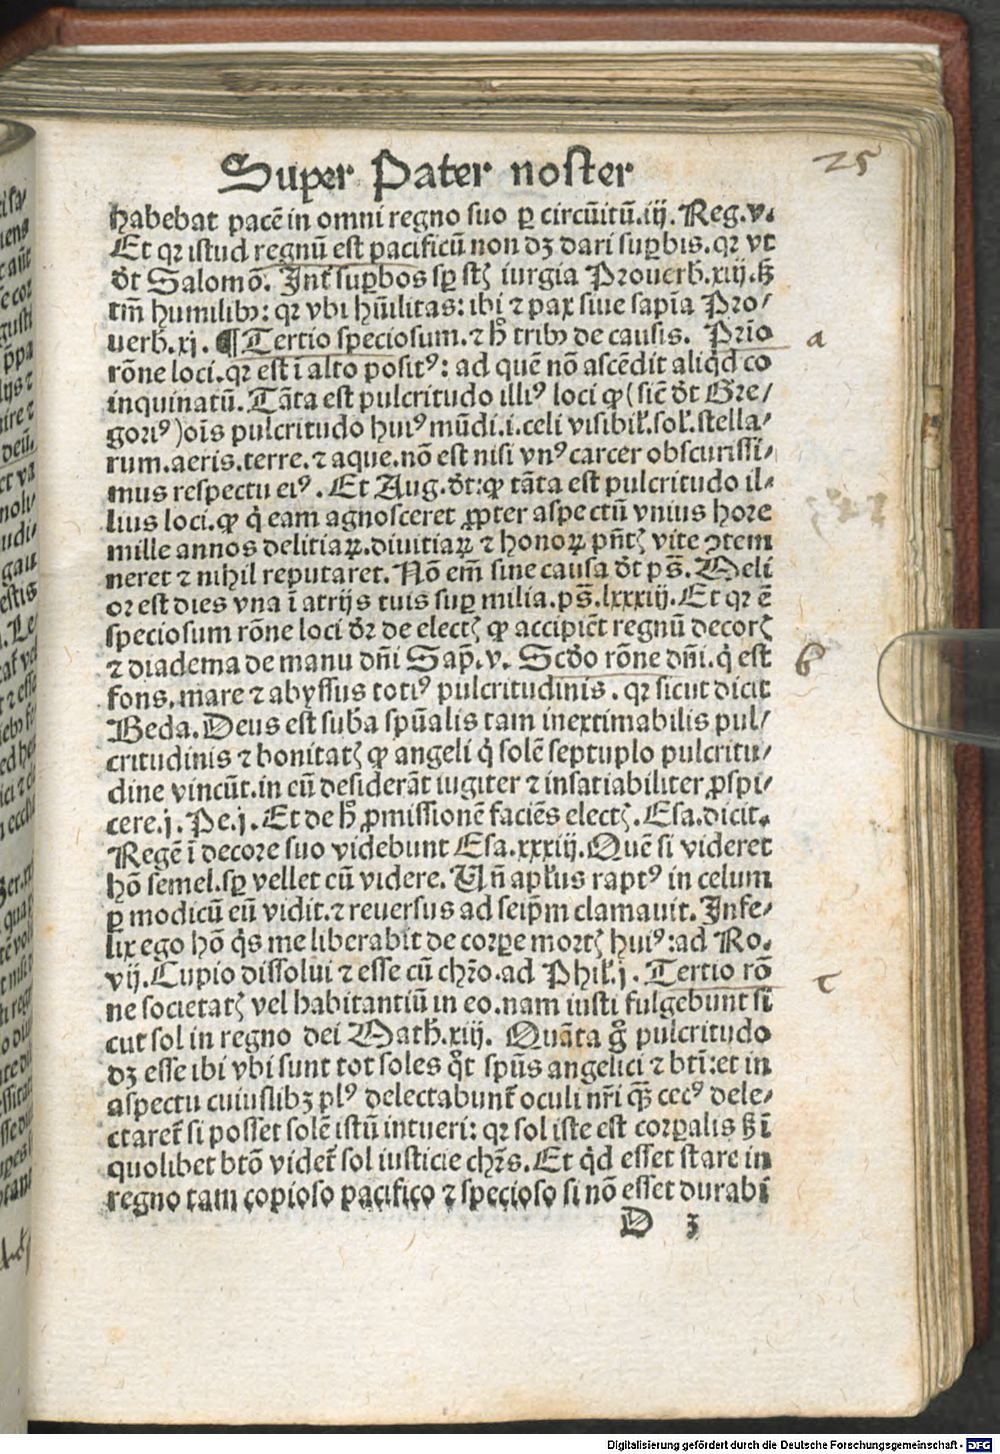 Super Pater noster
25
habebat pacē in omni regno suo ꝑ circūitū.iij. Reg.v.
Et qꝛ istud regnū est pacificū non dꝫ dari suꝑbis.qꝛ vt
dt̄ Salomō. Int̄ suꝑbos sꝑ stꝫ iurgia Prouerb̄.xiij.sꝫ
tm̄ humilibꝰ: qꝛ vbi hūilitas: ibi ⁊ pax siue sapīa Pro/
uerb̄.xj. ¶ Tertio speciosum.⁊ h̄ tribꝰ de causis. Prīo
a
rōne loci.qꝛ est ī alto positꝰ: ad quē nō ascēdit aliqd̄ co
inquinatū. Tāta est pulcritudo illiꝰ loci ꝙ (sic̄ dt̄ Gre/
goriꝰ) oīs pulcritudo huiꝰ mūdi.i.celi visibil̄.sol̄.stella/
rum.aeris.terre.⁊ aque.nō est nisi vnꝰ carcer obscurissi/
mus respectu eiꝰ. Et Aug. dt̄: ꝙ tāta est pulcritudo il/
lius loci. ꝙ q̇ eam agnosceret ꝓpter aspectū vnius hore
mille annos delitiaꝝ.diuitiaꝝ ⁊ honoꝝ pn̄tꝫ vite ꝯtem
neret ⁊ nihil reputaret. Nō em̄ sine causa dt̄ ps̄. Meli
or est dies vna ī atrijs tuis suꝑ milia.ps̄.lxxxiij. Et qꝛ ē
speciosum rōne loci dr̄ de electꝫ ꝙ accipiēt regnū decorꝫ
⁊ diadema de manu dn̄i Sap̄.v. Scdo rōne dn̄i.q̇ est
b
fons.mare ⁊ abyssus totiꝰ pulcritudinis. qꝛ sicut dicit
Beda. Deus est suba spūalis tam inextimabilis pul/
critudinis ⁊ bonitatꝫ ꝙ angeli q̇ solē septuplo pulcritu/
dine vincūt.in eū desiderāt iugiter ⁊ insatiabiliter ꝓspi/
cere.j. Pe.j. Et de h̄ ꝓmissionē faciēs electꝫ. Esa.dicit.
Regē ī decore suo videbunt Esa.xxxiij. Quē si videret
hō semel.sꝑ vellet eū videre. Vn̄ apl̄us raptꝰ in celum
ꝑ modicū eū vidit.⁊ reuersus ad seip̄m clamauit. Infe/
lix ego hō q̇s me liberabit de corꝑe mortꝫ huiꝰ: ad Ro.
vij. Cupio dissolui ⁊ esse cū chr̄o.ad Phil̄.j. Tertio rō
c
ne societatꝫ vel habitantiū in eo.nam iusti fulgebunt si
cut sol in regno dei Math̄.xiij. Quāta g̊ pulcritudo
dꝫ esse ibi vbi sunt tot soles q̊t spūs angelici ⁊ bti: et in
aspectu cuiuslibꝫ plꝰ delectabunt̄ oculi nr̄i qꝫ cecꝰ dele/
ctaret̄ si posset solē istū intueri: qꝛ sol iste est corꝑalis sꝫ ī
quolibet btō videt̄ sol iusticie chr̄s. Et qd̄ esset stare in
regno tam copioso pacifico ⁊ specioso si nō esset durabī
D 3
Digitalisierung gefördert durch die Deutsche Forschungsgemeinschaft - DFG